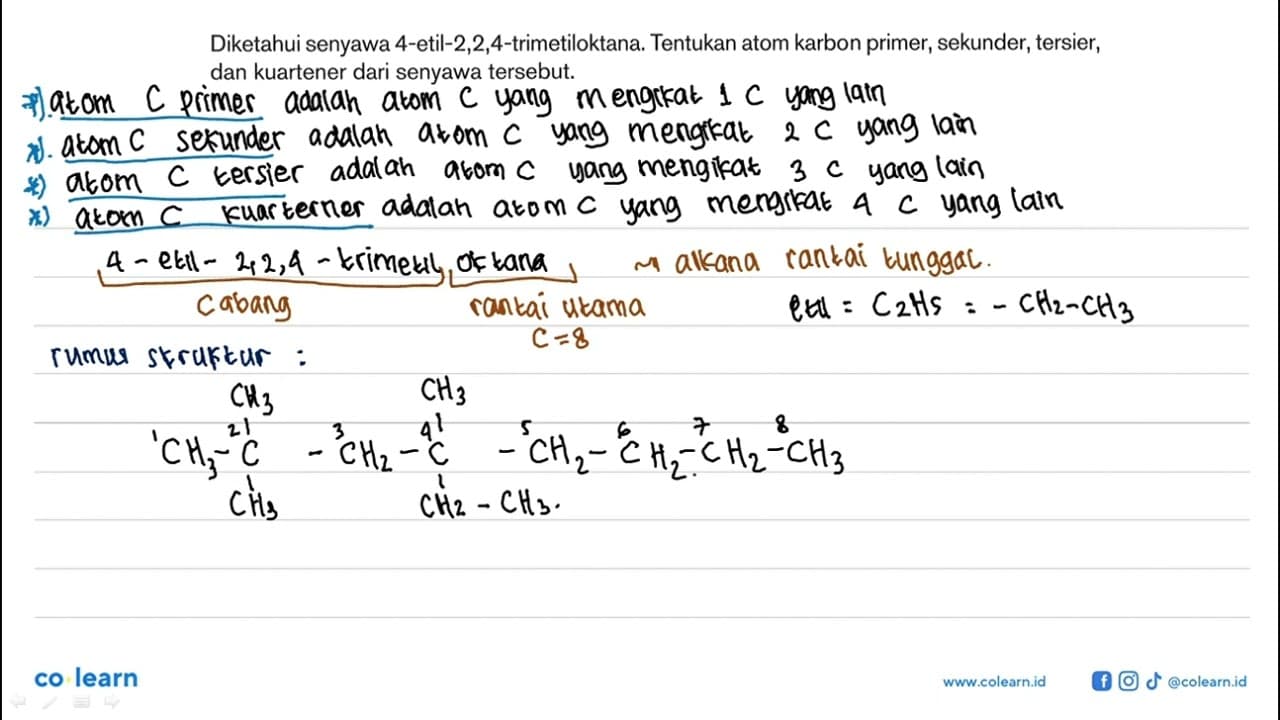 Diketahui senyawa 4-etil-2,2,4-trimetiloktana. Tentukan atom karbon primer, sekunder, tersier,
dan kuartener dari senyawa tersebut.
*). atom C primer adalah atom C yang mengikat 1 C yang lain
*). atom C sekunder adalah atom C yang mengikat 2 C yang lain
*) atom C tersier adalah atom C yang mengikat 3 C yang lain
*) atom C kuarterner adalah atom C yang mengikat 4 C yang lain
4 - etil - 2,2,4 - trimetil oktana ~> alkana rantai tunggal.
cabang rantai utama etil = C2H5 = - CH2-CH3
C = 8
rumus struktur :
CH3 CH3
1 2 3 4 5 6 7 8
CH3 - C - CH2 - C - CH2 - CH2 - CH2 - CH3
CH3 CH2 - CH3.
co learn
www.colearn.id
@colearn.id